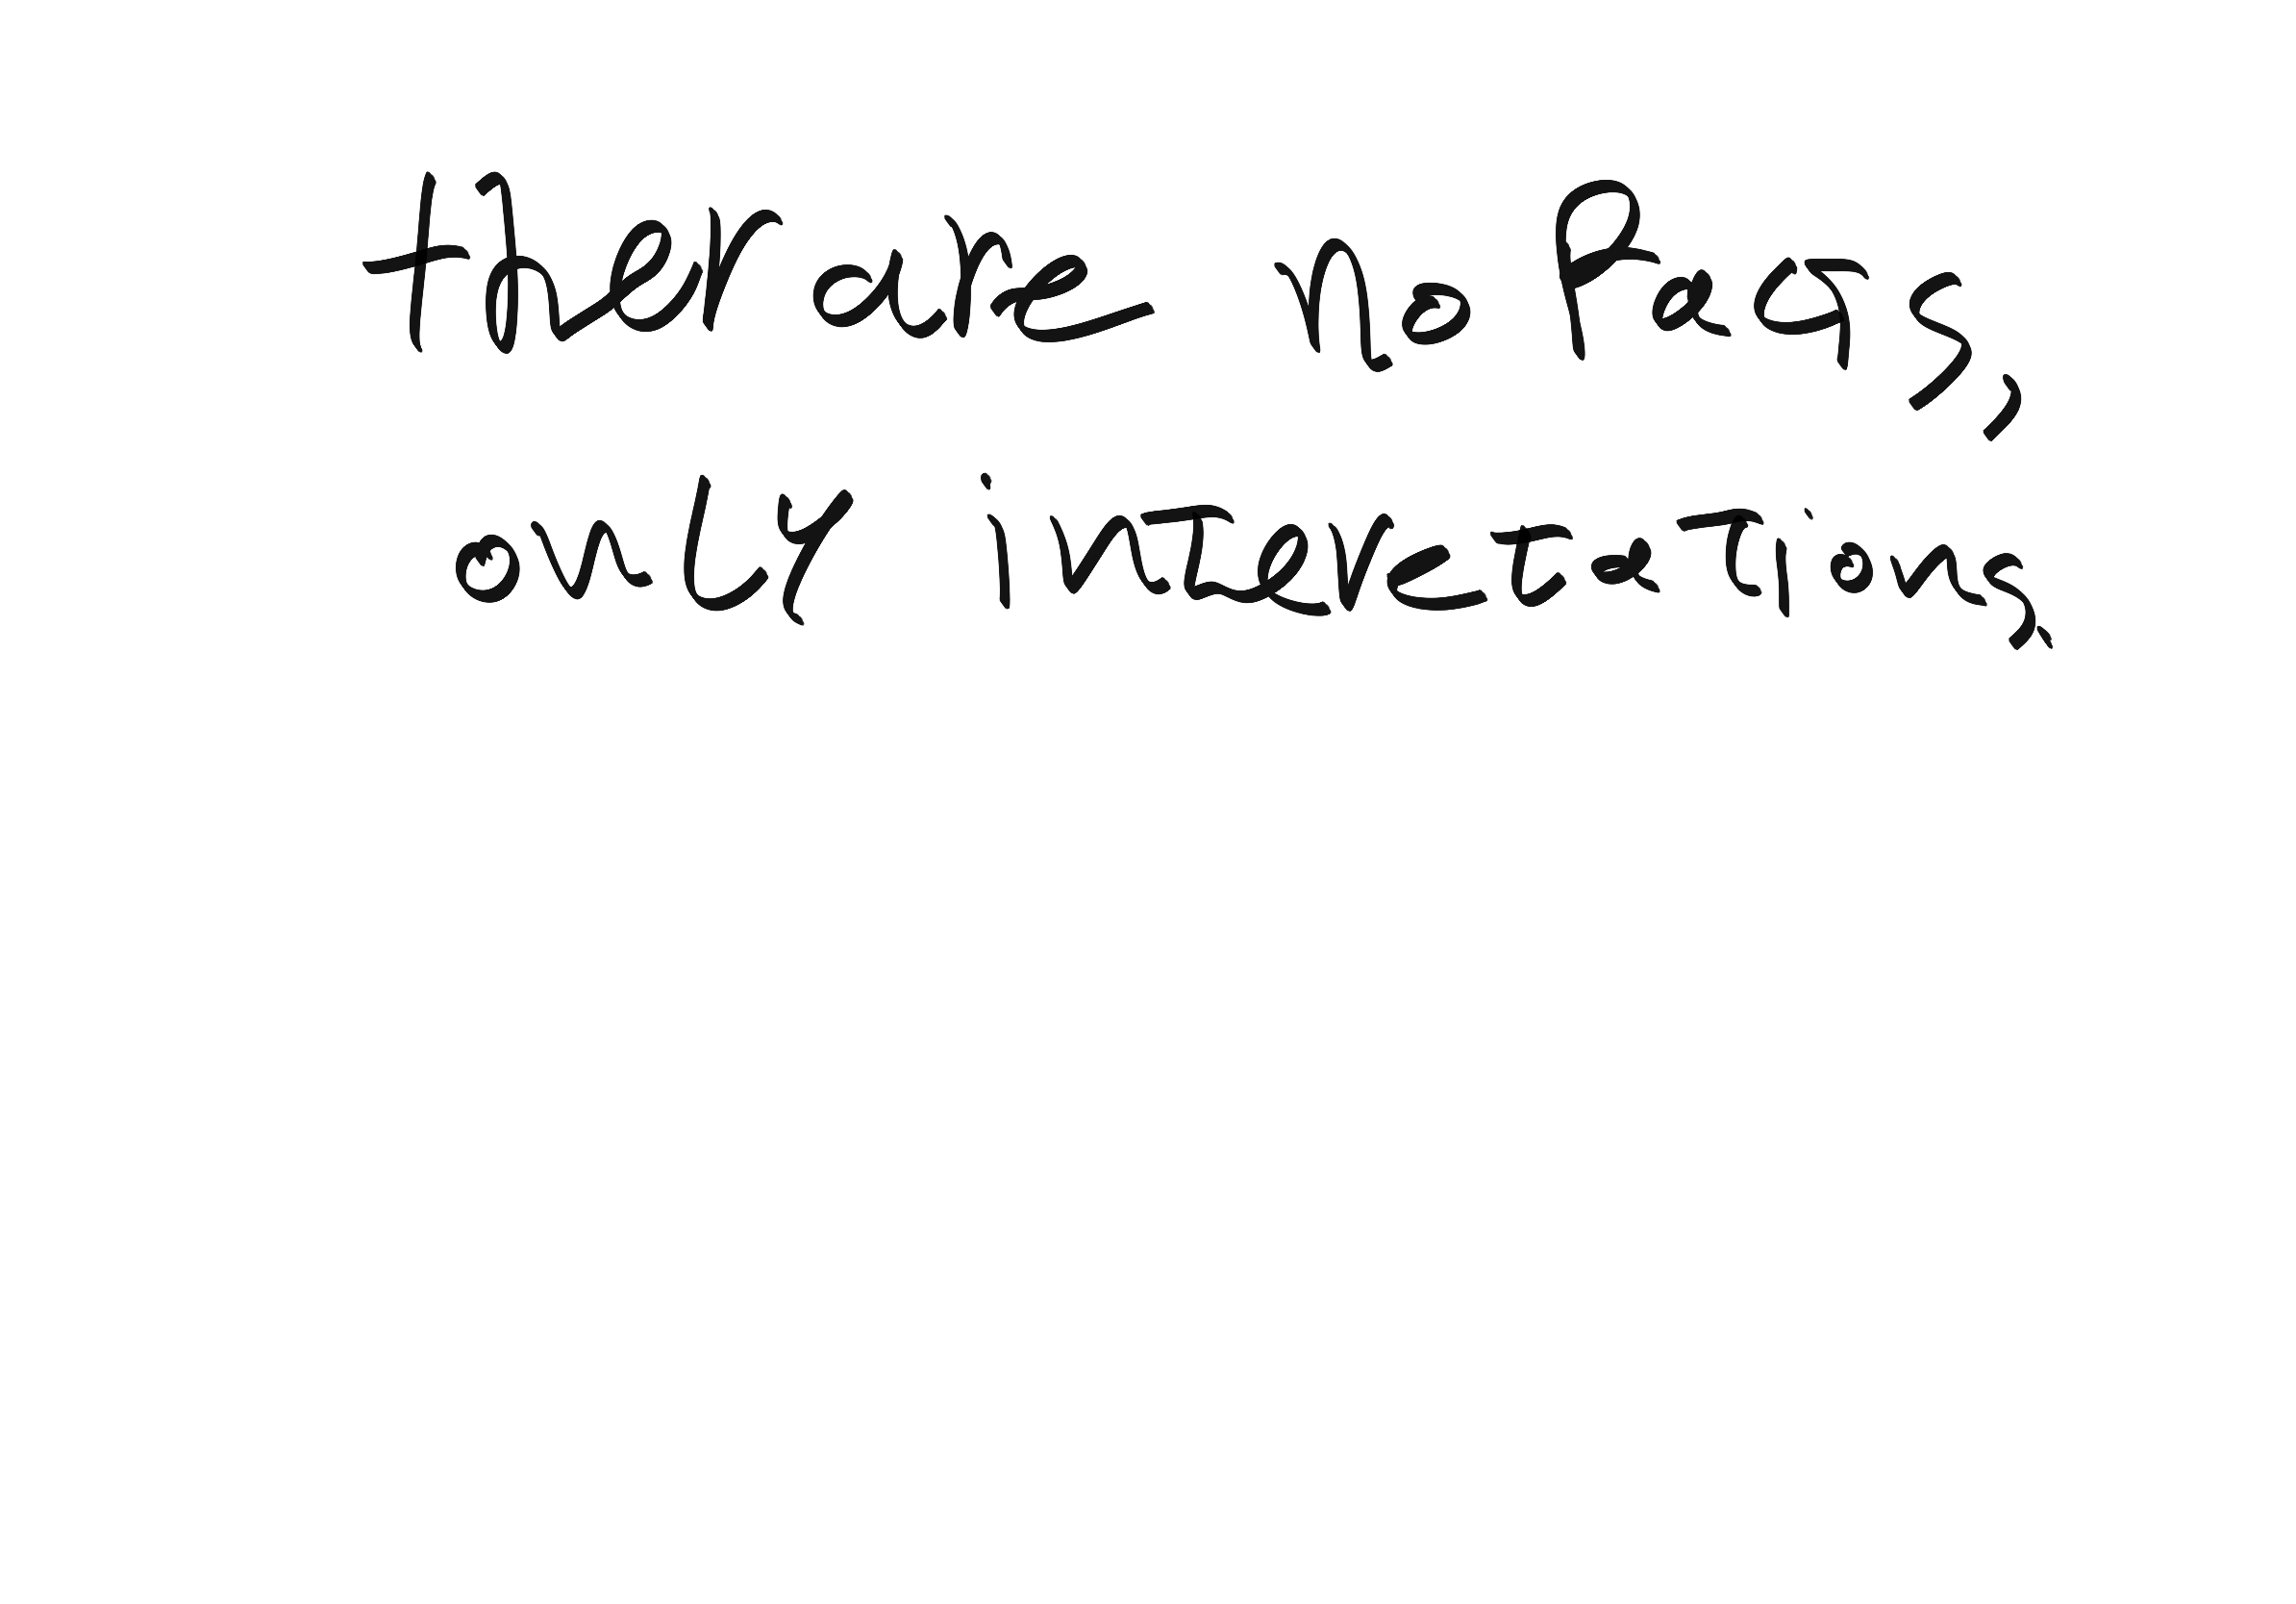 ther are no Pacts,
only interetations.